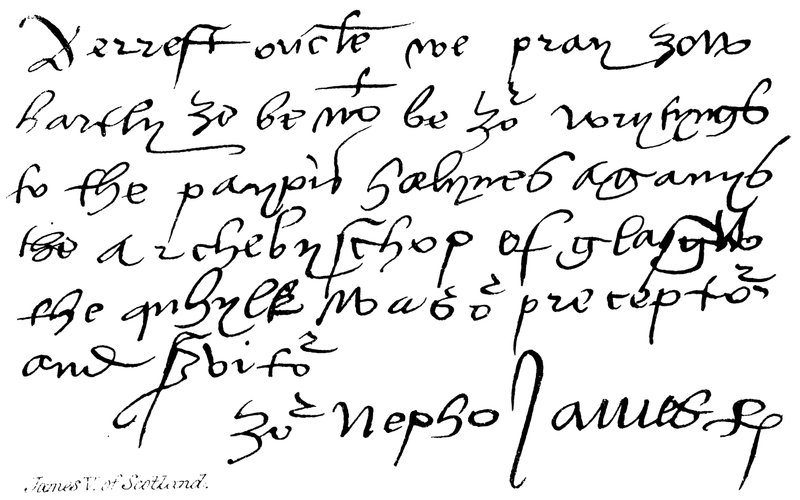 Derrest oncle we pray ȝow
hartly ȝe be be ȝoʳ wrytyngs
to the paypis halynes aganys
the archebyschop of glasgw
the quhylk was oʳ preceptoʳ
and servitoʳ
ȝoʳ Nepho James R
James V. of Scotland.